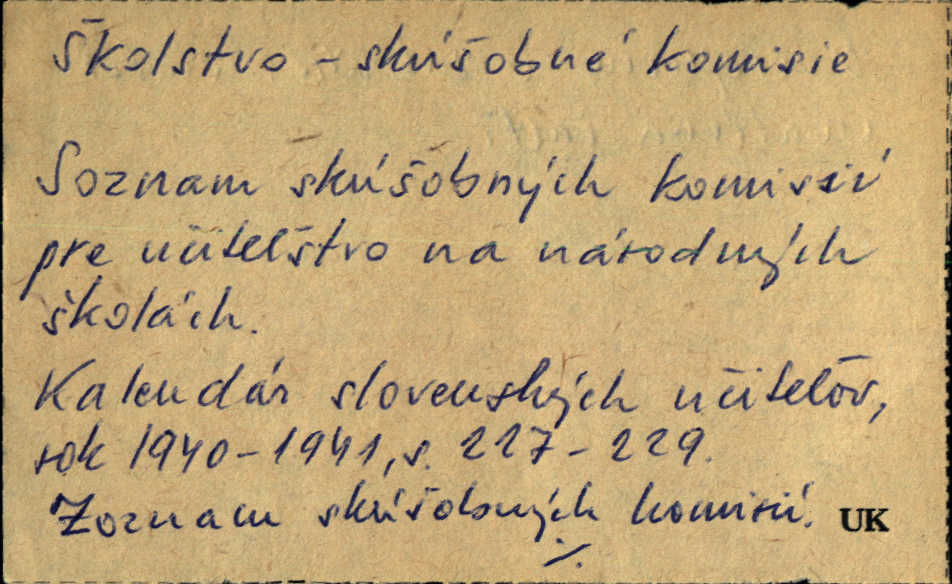 Školstvo - skúšobné komisie
Soznam skúšobných komisií
pre učiteľstvo na národných
školách.
Kalendár slovenských učiteľov,
rok 1940-1941, s. 227-229.
Zoznam skúšobných komisií. UK
./.